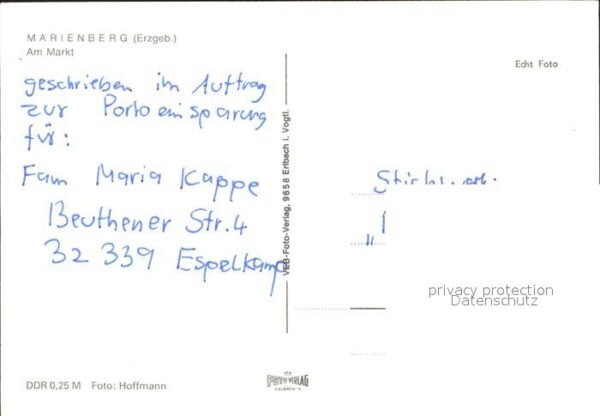 MARIENBERG (Erzgeb.)
Am Markt
Echt Foto
geschrieben im Auftrag
zur Portoeinsparung
für:
Fam Maria Kappe
Beuthener Str. 4
32 339 Espelkamp
VEB-Foto-Verlag, 9658 Erlbach i. Vogtl.
privacy protection
Datenschutz
DDR 0,25 M Foto: Hoffmann
FOTO VERLAG